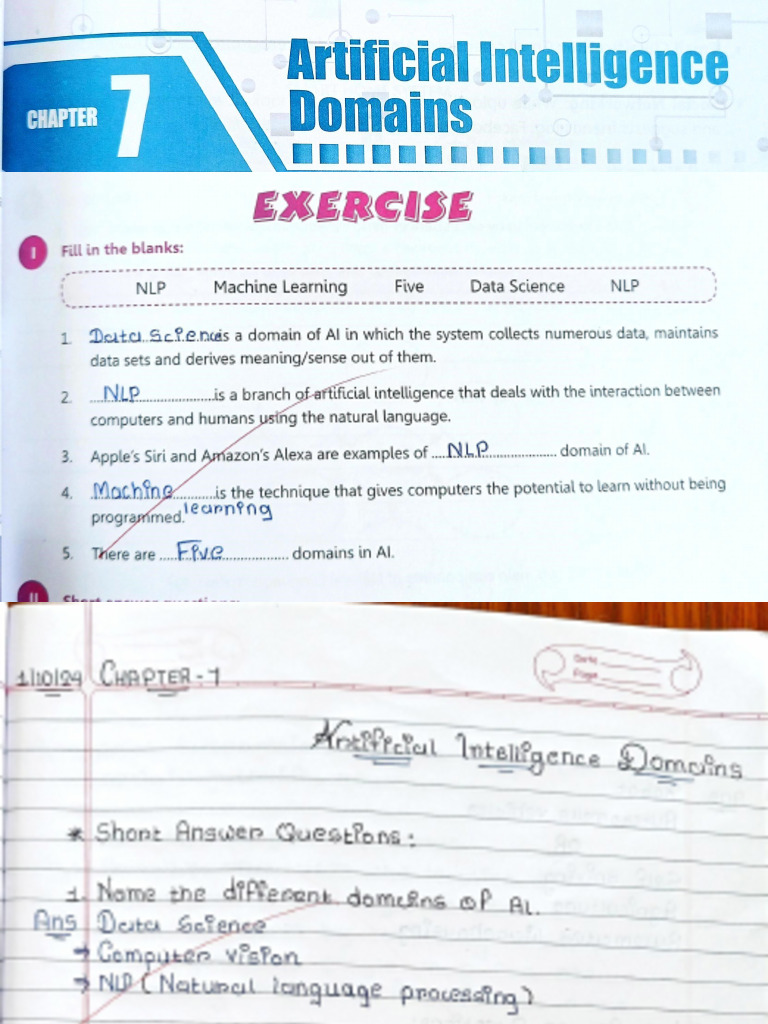 CHAPTER 7
Artificial Intelligence
Domains
EXERCISE
I Fill in the blanks:
NLP Machine Learning Five Data Science NLP
1. Data Science is a domain of AI in which the system collects numerous data, maintains
data sets and derives meaning/sense out of them.
2. NLP is a branch of artificial intelligence that deals with the interaction between
computers and humans using the natural language.
3. Apple's Siri and Amazon's Alexa are examples of NLP domain of AI.
4. Machine is the technique that gives computers the potential to learn without being
programmed. learning
5. There are Five domains in AI.
II Short answer questions:
1/10/24 CHAPTER-7
Date
Page
Artificial Intelligence Domains
* Short Answer Questions:
1. Name the different domains of AI.
Ans Data Science
→ Computer vision
→ NLP (Natural language processing)